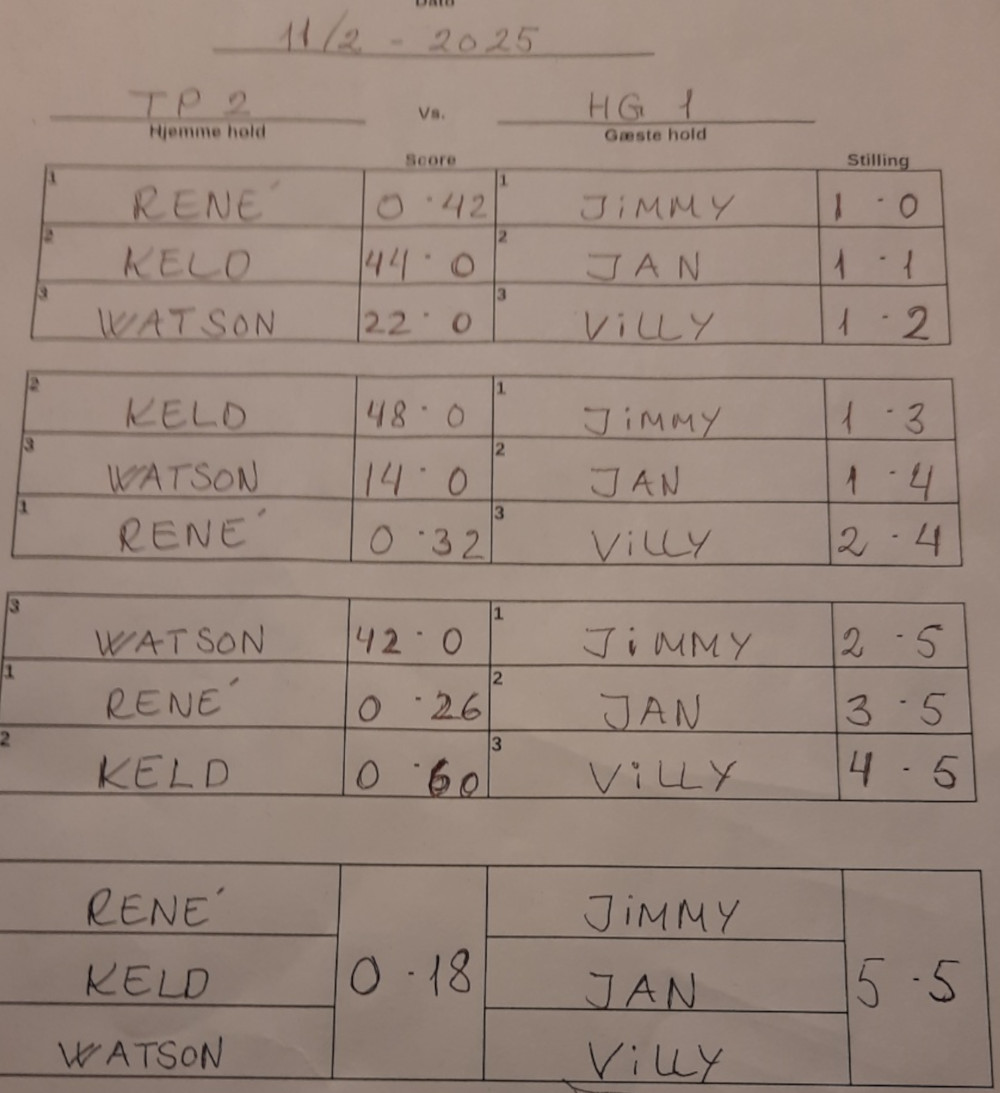 Dato
11/2 - 2025
TP 2 Vs. HG 1
Hjemme hold Gæste hold
Score Stilling
1 RENÉ 0 · 42 1 JiMMY 1 · 0
2 KELD 44 · 0 2 JAN 1 · 1
3 WATSON 22 · 0 3 ViLLY 1 · 2
2 KELD 48 · 0 1 JiMMY 1 · 3
3 WATSON 14 · 0 2 JAN 1 · 4
1 RENÉ 0 · 32 3 ViLLY 2 · 4
3 WATSON 42 · 0 1 JiMMY 2 · 5
1 RENÉ 0 · 26 2 JAN 3 · 5
2 KELD 0 · 60 3 ViLLY 4 · 5
RENÉ JiMMY
KELD 0 · 18 JAN 5 · 5
WATSON ViLLY